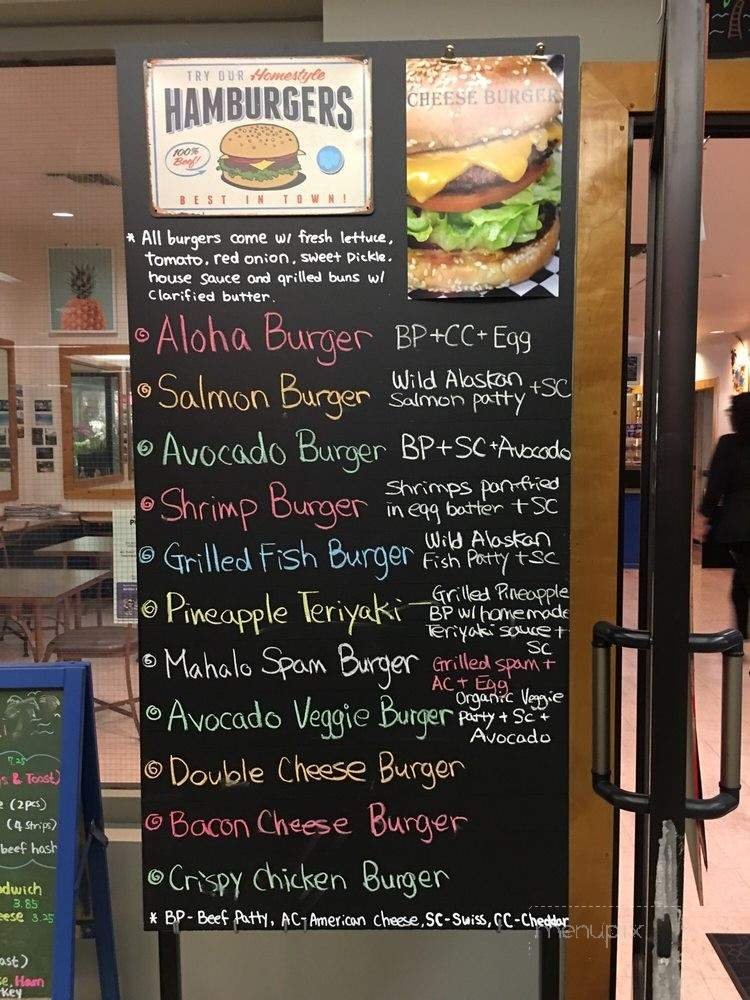 TRY OUR Homestyle
HAMBURGERS
100%
Beef!
BEST IN TOWN!
CHEESE BURGER
* All burgers come w/ fresh lettuce,
tomato, red onion, sweet pickle,
house sauce and grilled buns w/
clarified butter.
Aloha Burger BP+CC+Egg
Salmon Burger Wild Alaskan
Salmon patty +SC
Avocado Burger BP+SC+Avocado
Shrimp Burger Shrimps pan-fried
in egg batter + SC
Grilled Fish Burger Wild Alaskan
Fish Patty +SC
Pineapple Teriyaki — Grilled Pineapple
BP w/ homemade
Teriyaki sauce +
SC
Mahalo Spam Burger Grilled spam +
AC + Egg
Avocado Veggie Burger Organic Veggie
Patty + Sc +
Avocado
Double Cheese Burger
Bacon Cheese Burger
Crispy Chicken Burger
* BP-Beef Patty, AC-American cheese, SC-Swiss, CC-Cheddar
menupix
7.25
s & Toast)
e (2pcs)
(4 strips)
beef hash
dwich
3.85
ese 3.25
ast)
se, Ham
rkey